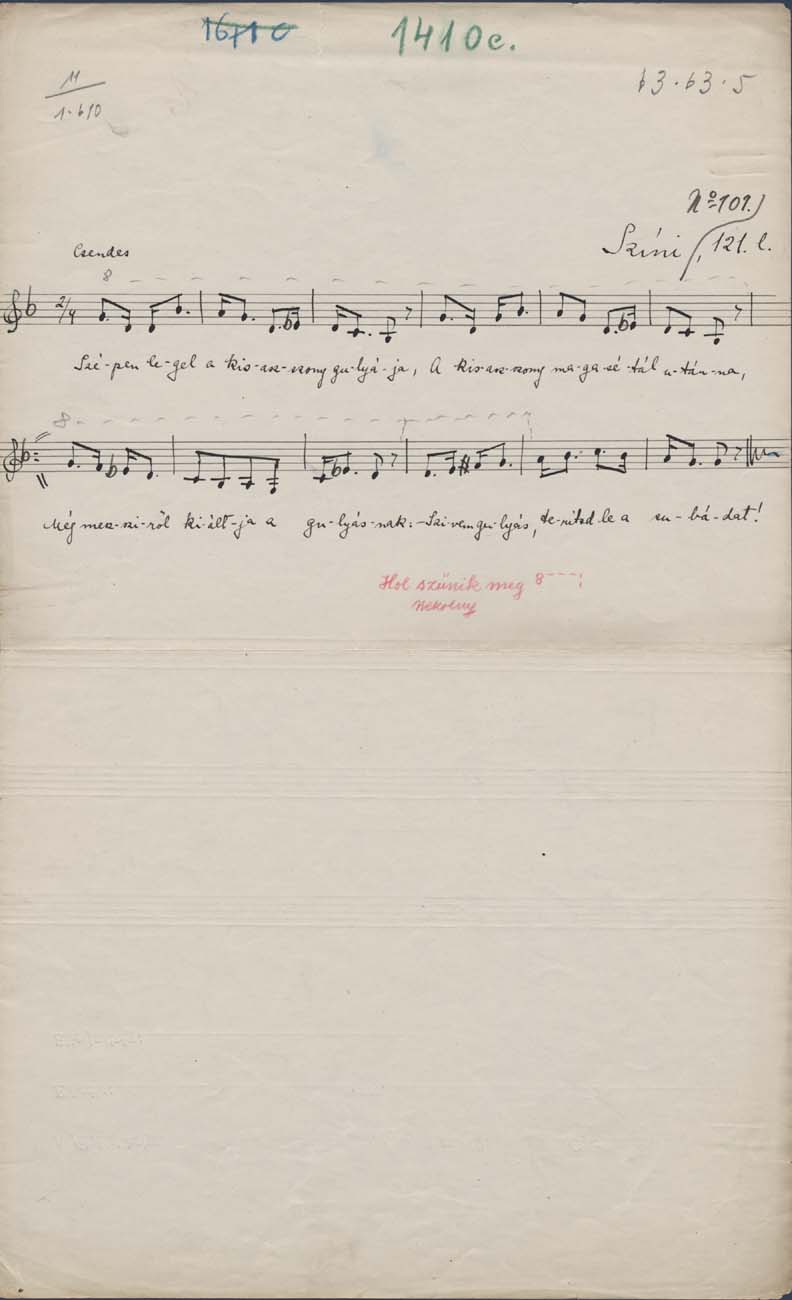 1410c.
11
1-610
b3·b3·5
No 101.)
Színi, 121. l.
Csendes
8
2/4
Szé-pen le-gel a kis-asz-szony gu-lyá-ja, A kis-asz-szony ma-ga sé-tál u-tán-na,
8
Még mesz-szi-ről ki-ált-ja a gu-lyás-nak: -Szi-vem gu-lyás, te-ritsd le a su-bá-dat!
Hol szűnik meg 8